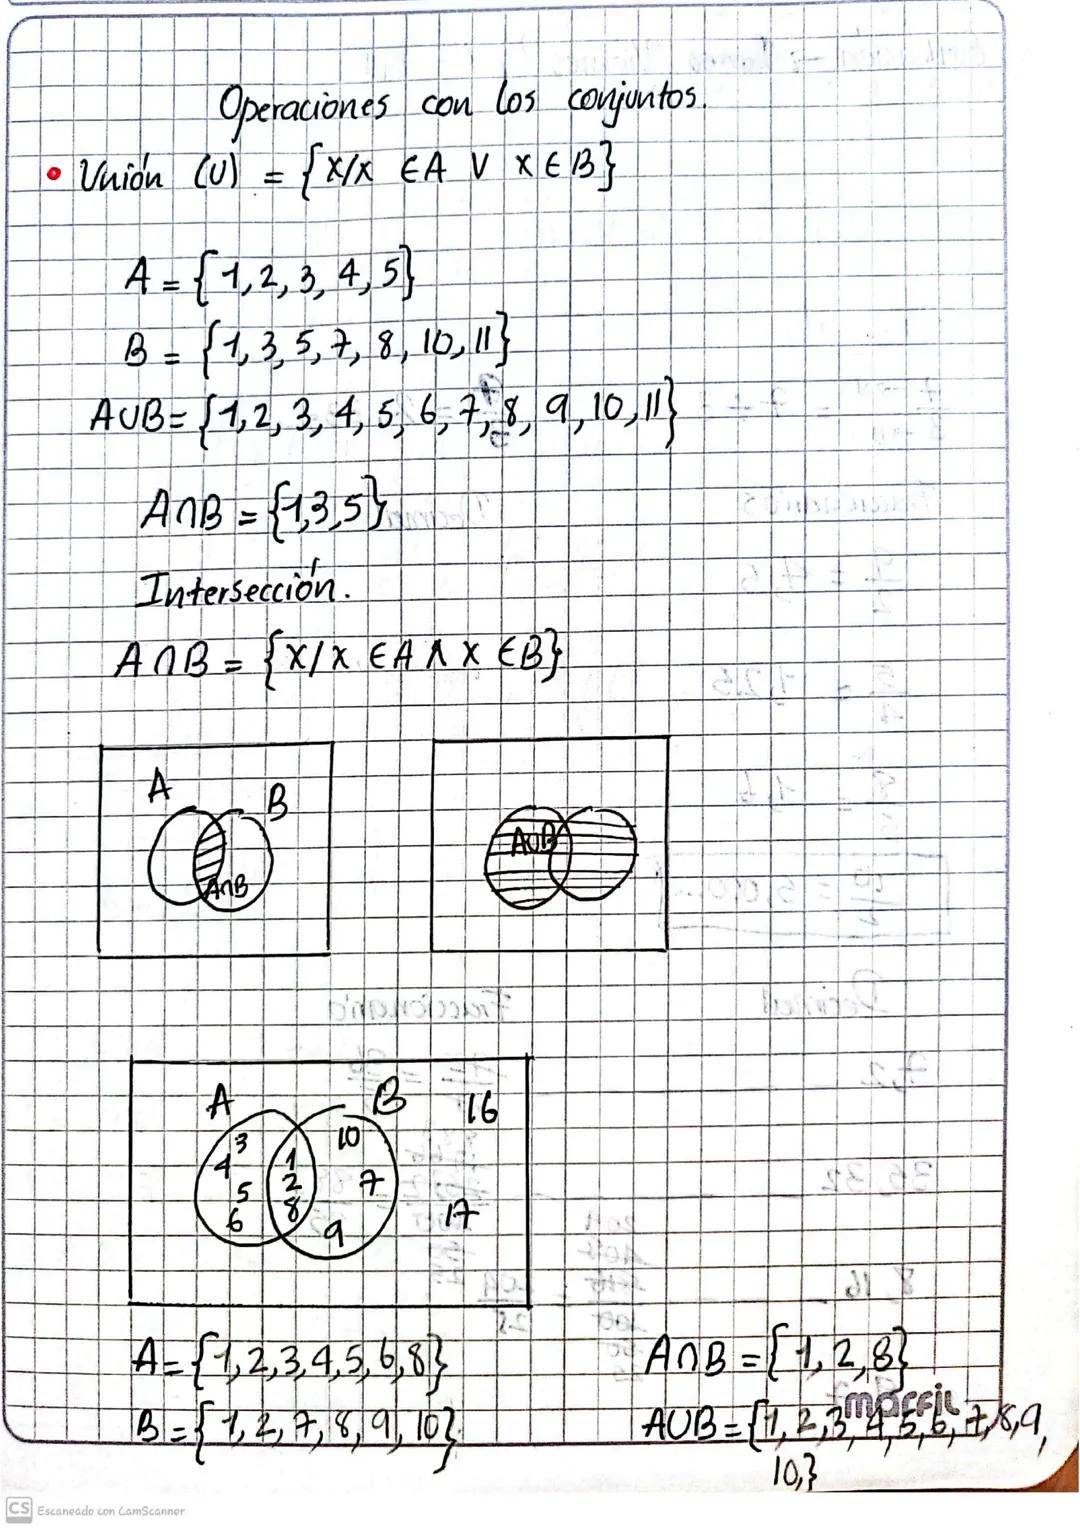 Operaciones con los conjuntos.
• Unión (U) = {x/x ∈ A ∨ x ∈ B}
A = {1, 2, 3, 4, 5}
B = {1, 3, 5, 7, 8, 10, 11}
A∪B = {1, 2, 3, 4, 5, 6, 7, 8, 9, 10, 11}
A∩B = {1,3,5}
Intersección.
A∩B = {x/x ∈ A ∧ x ∈ B}
A
B
A∩B
A∪B
A
B
16
3
10
4
1
5
2
7
6
8
17
9
A = {1, 2, 3, 4, 5, 6, 8}
A∩B = {1, 2, 8}
marfil
B = {1, 2, 7, 8, 9, 10}
A∪B = {1, 2, 3, 4, 5, 6, 7, 8, 9,
10,}
CS Escaneado con CamScanner